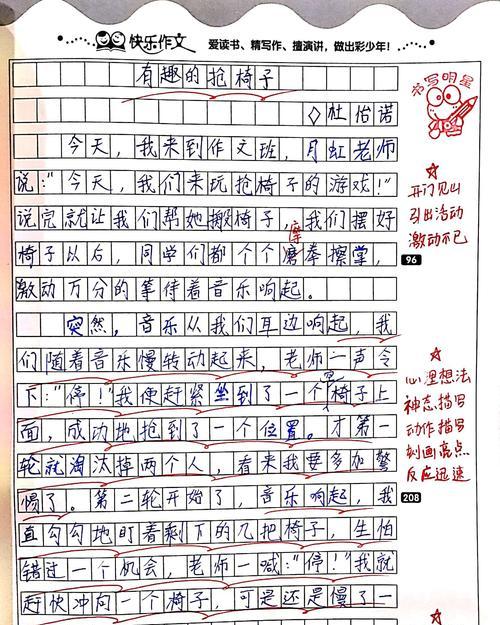 快乐作文 爱读书、精写作、擅演讲，做出彩少年！
有趣的抢椅子
◇杜怡诺
书写明星
今天，我来到作文班，月虹老师
说："今天，我们来玩抢椅子的游戏！"
说完就让我们帮她搬椅子，我们摆好
椅子以后，同学们都个个磨拳擦掌，
摩
激动万分的等待着音乐响起。
开门见山
引出活动
激动不已
96
突然，音乐从我们耳边响起，我
们随着音乐慢转动起来，老师一声令
下："停！"我便赶紧坐到了一个椅子上
面，成功地抢到了一个位置。才第一
轮就淘汰掉两个人，看来我要多加警
惕了。第二轮开始了，音乐响起，我
直勾勾地盯着剩下的几把椅子，生怕
错过一个机会，老师一喊："停！"我就
赶快冲向一个椅子，可是还是慢了一
心理想法
神态描写
动作描写
刻画亮点
反应迅速
208